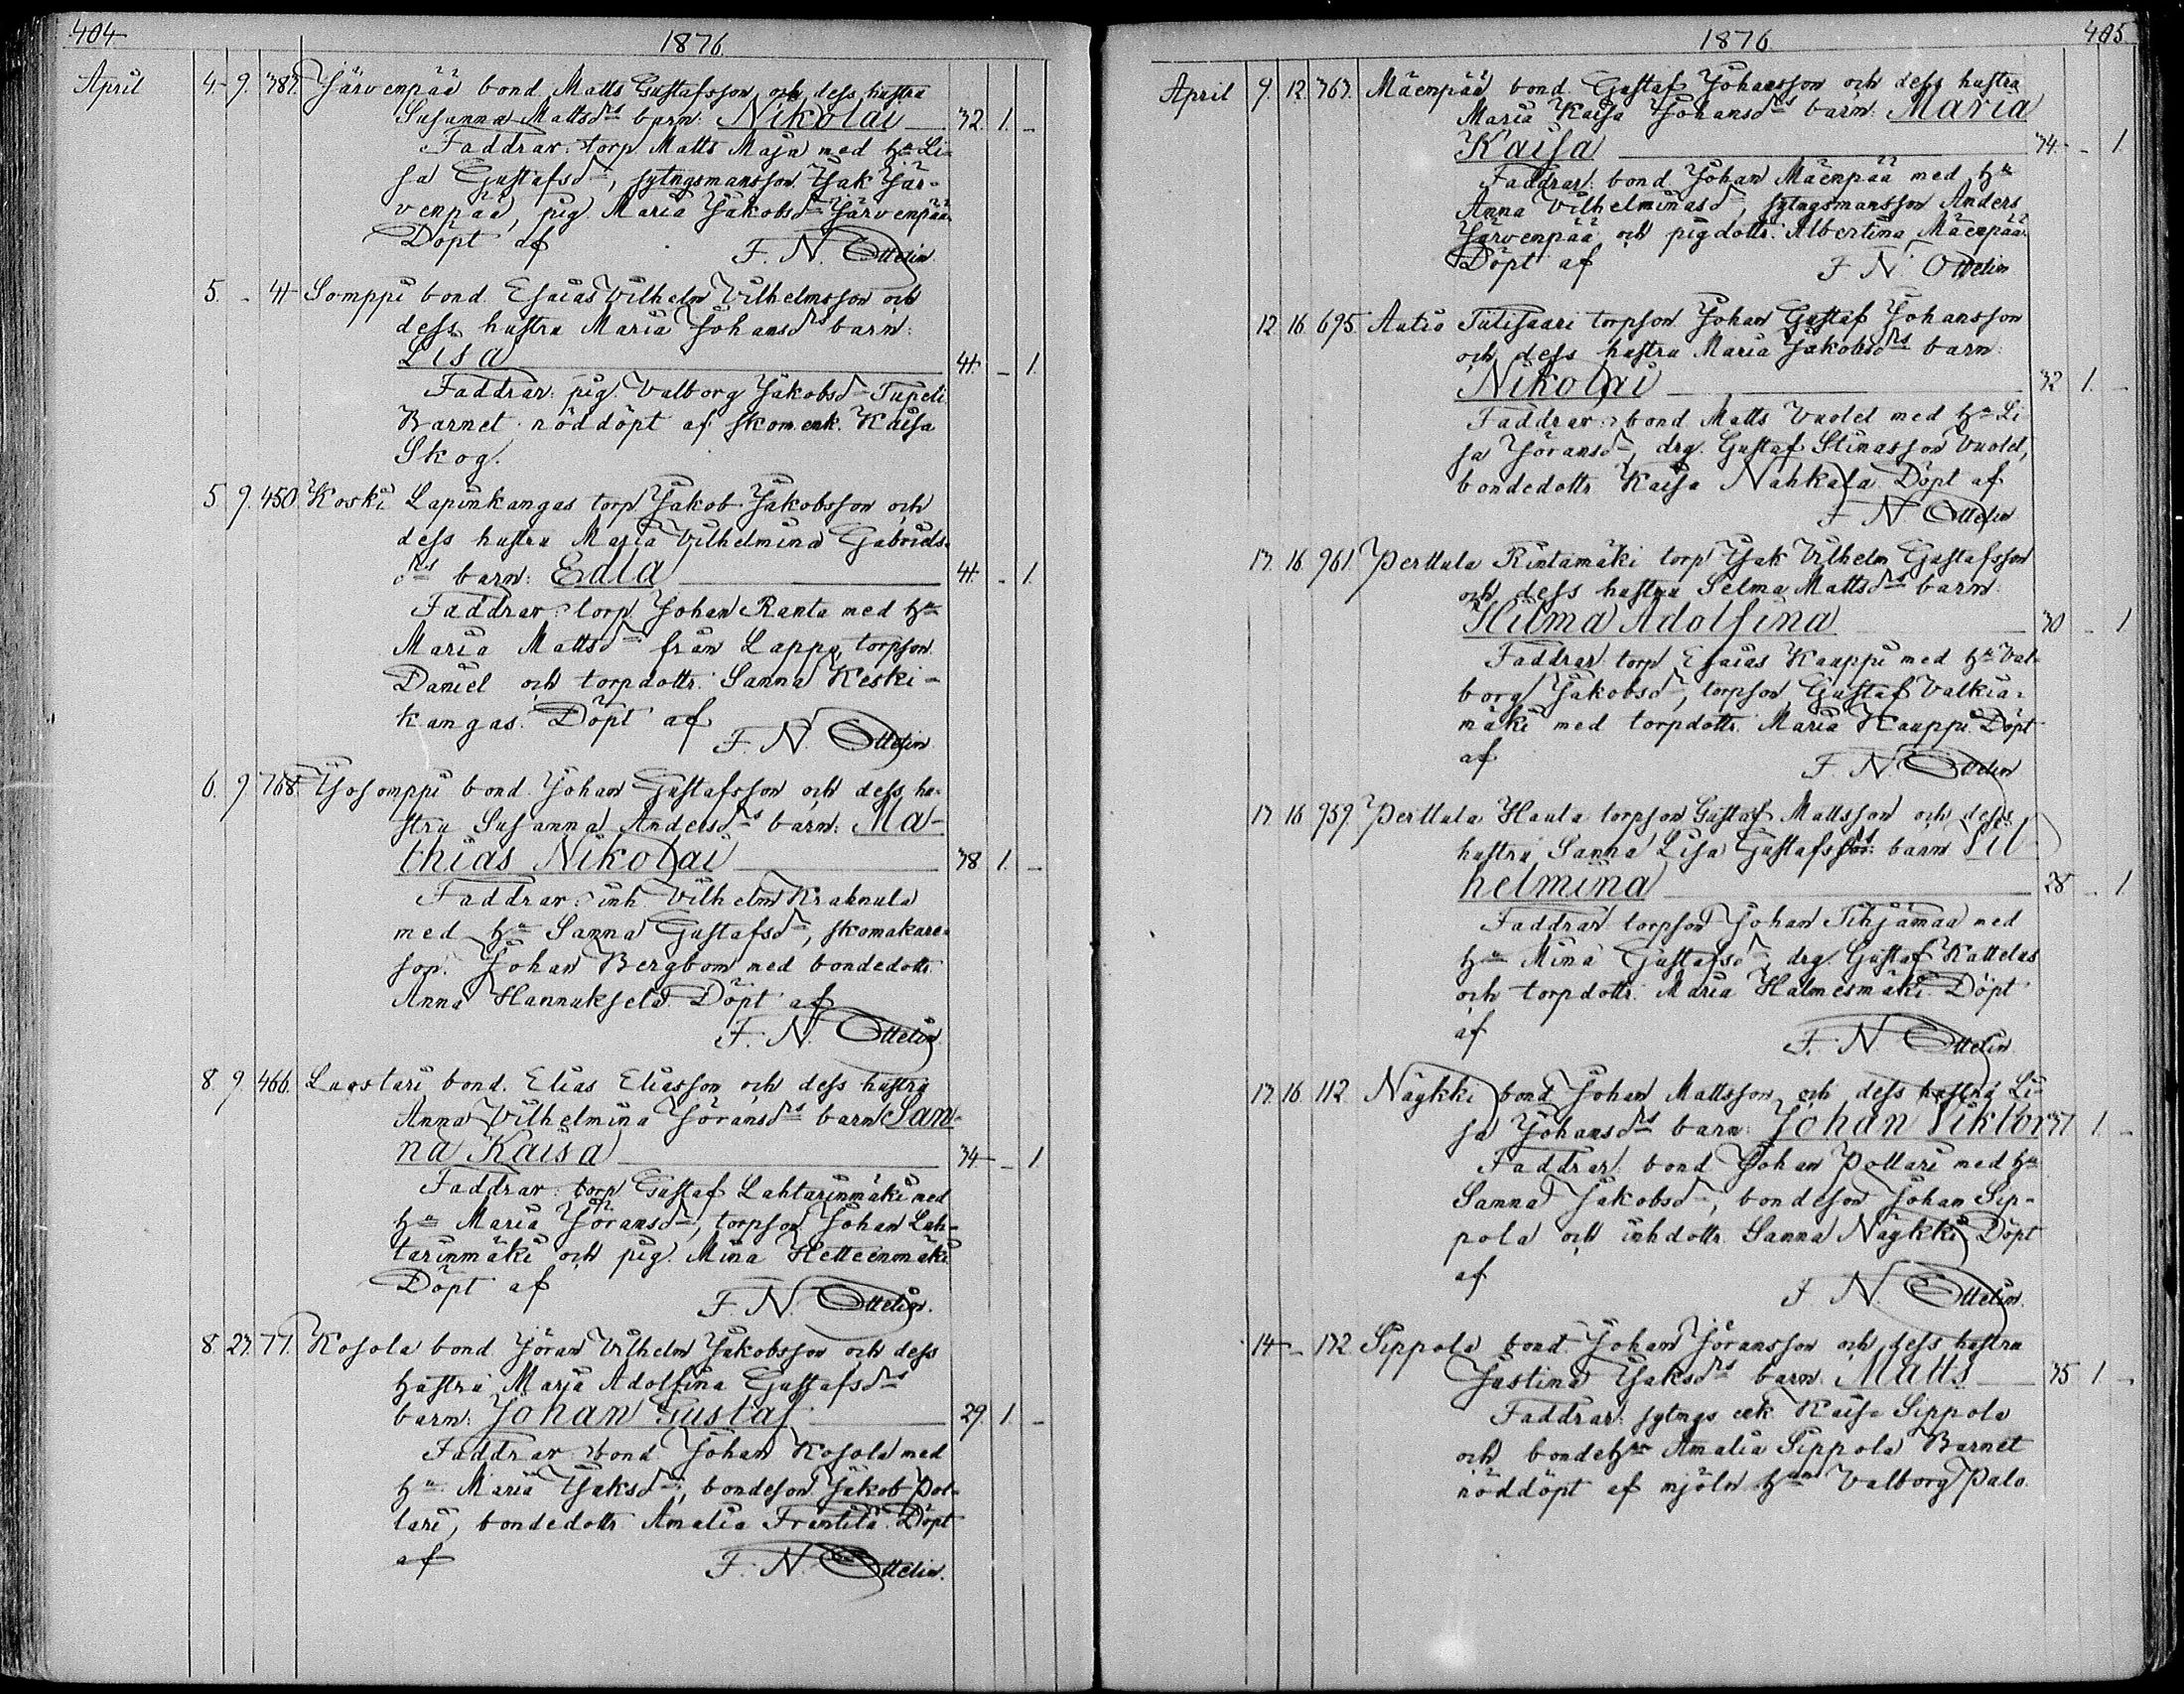 404. 1876.
April 4. 9. 387. Järvenpää bond. Matts Gustafsson och dess hustru
Susanna Mattsdrs barn: Nikolai 32. 1. -
Faddrar: torp. Matts Maja med hu Li-
sa Gustafsdr, sytngsmansson Isak Jär-
venpää, pig. Maria Jakobsdr Järvenpää.
Döpt af F. N. Ottelin.
5. - 4 Somppi bond. Esaias Vilhelm Vilhelmsson och
dess hustru Maria Johansdrs barn:
Lisa 41. - 1.
Faddrar: pig. Valborg Jakobsdr Tupeli.
Barnet nöddöpt af skom.enk. Kaisa
Skog.
5 9. 450. Koski Lapinkangas torp Jakob Jakobsson och
dess hustru Maria Vilhelmina Gabriels-
drs barn: Edla 41. - 1.
Faddrar: torp. Johan Ranta med hu
Maria Mattsdr från Lappo, torpson
Daniel och torpdottr. Sanna Keski-
kangas. Döpt af
F. N. Ottelin
6. 9 768. Yosomppi bond. Johan Gustafsson och dess hu-
stru Susanna Andersdrs barn: Ma-
thias Nikolai 38 1. -
Faddrar: inh. Vilhelm Kraknula
med hu Sanna Gustafsdr, skomakare-
son. Johan Bergbom med bondedottr
Anna Hannuksela. Döpt af
F. N. Ottelin
8. 9 466. Luostari bond. Elias Eliasson och dess hustru
Anna Vilhelmina Jöransdrs barn San-
na Kaisa 34 - 1
Faddrar: torp Gustaf Lahtarinmäki med
hu Maria Jöransdr, torpson Johan Lah-
tarinmäki och pig. Mina Hetteenmäki
Döpt af
F. N. Ottelin.
8. 23. 77. Kosola bond Jöran Vilhelm Jakobsson och dess
hustru Maria Adolfina Gustafsdrs
barn: Johan Gustaf 29. 1. -
Faddrar: bond Johan Kosola med
hu Maria Isaksdr, bondeson Jakob Pot-
tari, bondedottr Amalia Frantilä. Döpt
af F. N. Ottelin.
1876 405.
April 9. 12. 363. Mäenpää bond. Gustaf Johansson och dess hustru
Maria Kaisa Johansdrs barn: Maria
Kaisa 34. - 1.
Faddrar: bond Johan Mäenpää med hu
Anna Vilhelminasdr, sytngsmansson Anders
Järvenpää och pigdottr. Albertina Mäenpää.
Döpt af F. N. Ottelin
12 16 695. Autio Tiitisaari torpson Johan Gustaf Johansson
och dess hustru Maria Jakobsdrs barn:
Nikolai 32 1. -
Faddrar: bond Matts Vuolet med hu Li-
sa Jöransdr, drg. Gustaf Stinasson Vuolet,
bondedottr Kaisa Nahkala. Döpt af
F. N. Ottelin
13. 16 961. Perttula Rintamäki torp Isak Vilhelm Gustafsson
och dess hustru Selma Mattsdrs barn:
Hilma Adolfina 30 - 1
Faddrar torp Esaias Kauppi med hu Val-
borg Jakobsdr, torpson Gustaf Valkia-
mäki med torpdottr. Maria Kauppi. Döpt
af F. N. Ottelin
13 16 959. Perttula Hauta torpson Gustaf Mattsson och dess
hustru Sanna Lisa Gustafsdrs barn Vil-
helmina 28 - 1
Faddrar torpson Johan Tihjämaa med
hu Mina Gustafsdr, drg. Gustaf Kattelus
och torpdottr. Maria Halmesmäki. Döpt
af F. N. Ottelin
13. 16 112. Näykki bond Johan Mattsson och dess hustru Li-
sa Johansdrs barn: Johan Viktor 37 1. -
Faddrar: bond Johan Pottari med hu
Sanna Jakobsdr, bondeson Johan Sip-
pola och inhdottr Sanna Näykki. Döpt
af F. N. Ottelin.
14 - 132 Sippola bond Johan Jöransson och dess hustru
Justina Isaksdrs barn: Matts 35 1. -
Faddrar: sytngs enk Kaisa Sippola
och bondehu Amalia Sippola Barnet
nöddöpt af mjöln hun Valborg Palo.